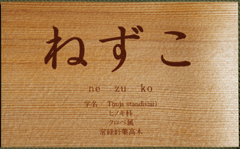 ねずこ
ne zu ko
学名 Thuja standishii
ヒノキ科
クロベ属
常緑針葉高木